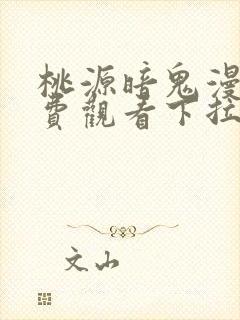 桃源暗鬼漫
費觀看下拉
文山